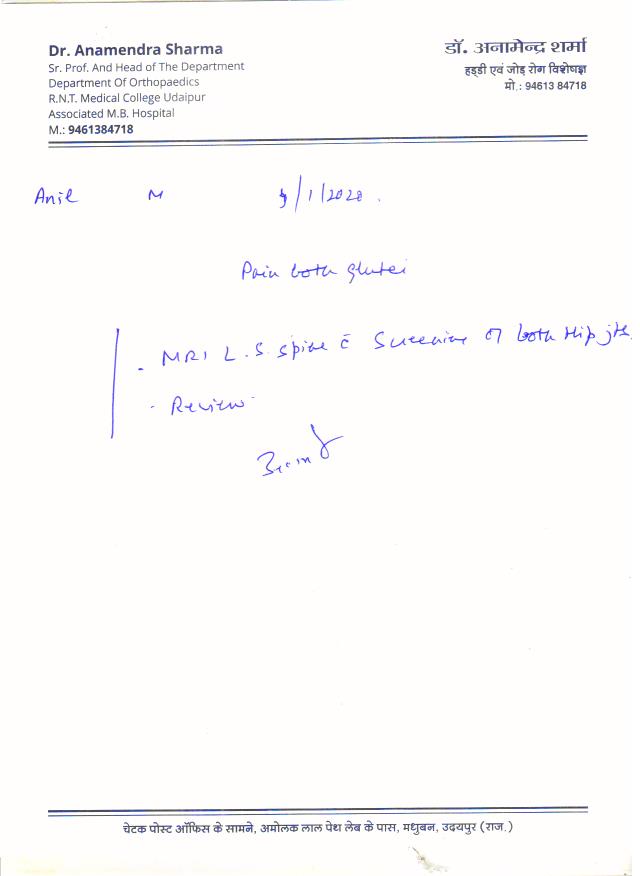 Dr. Anamendra Sharma
Sr. Prof. And Head of The Department
Department Of Orthopaedics
R.N.T. Medical College Udaipur
Associated M.B. Hospital
M.: 9461384718
डॉ. अनामेन्द्र शर्मा
हड्डी एवं जोड़ रोग विशेषज्ञ
मो.: 94613 84718
Anil M /1/2020.
Pain both glutei
- MRI L.S. spine c̄ Screening of both Hip jts.
- Review
चेटक पोस्ट ऑफिस के सामने, अमोलक लाल पेथ लेब के पास, मधुबन, उदयपुर (राज.)